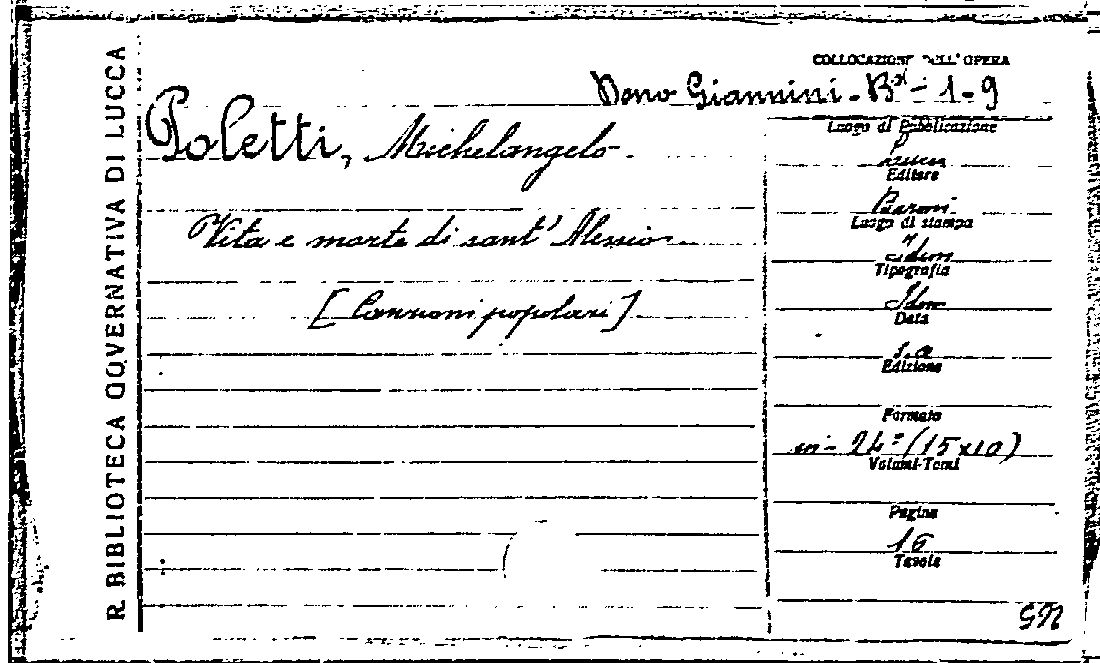 R. BIBLIOTECA GOVERNATIVA DI LUCCA
COLLOCAZIONE DELL'OPERA
Dono Giannini - Bᵃ - 1 - 9
Poletti, Michelangelo.
Vita e morte di sant'Alessio.
[Canzoni popolari]
Luogo di Pubblicazione
Lucca
Editore
Baroni
Luogo di stampa
Idem
Tipografia
Idem
Data
s.a
Edizione
Formato
in-24° (15x10)
Volumi-Tomi
Pagine
16
Tavole
GN